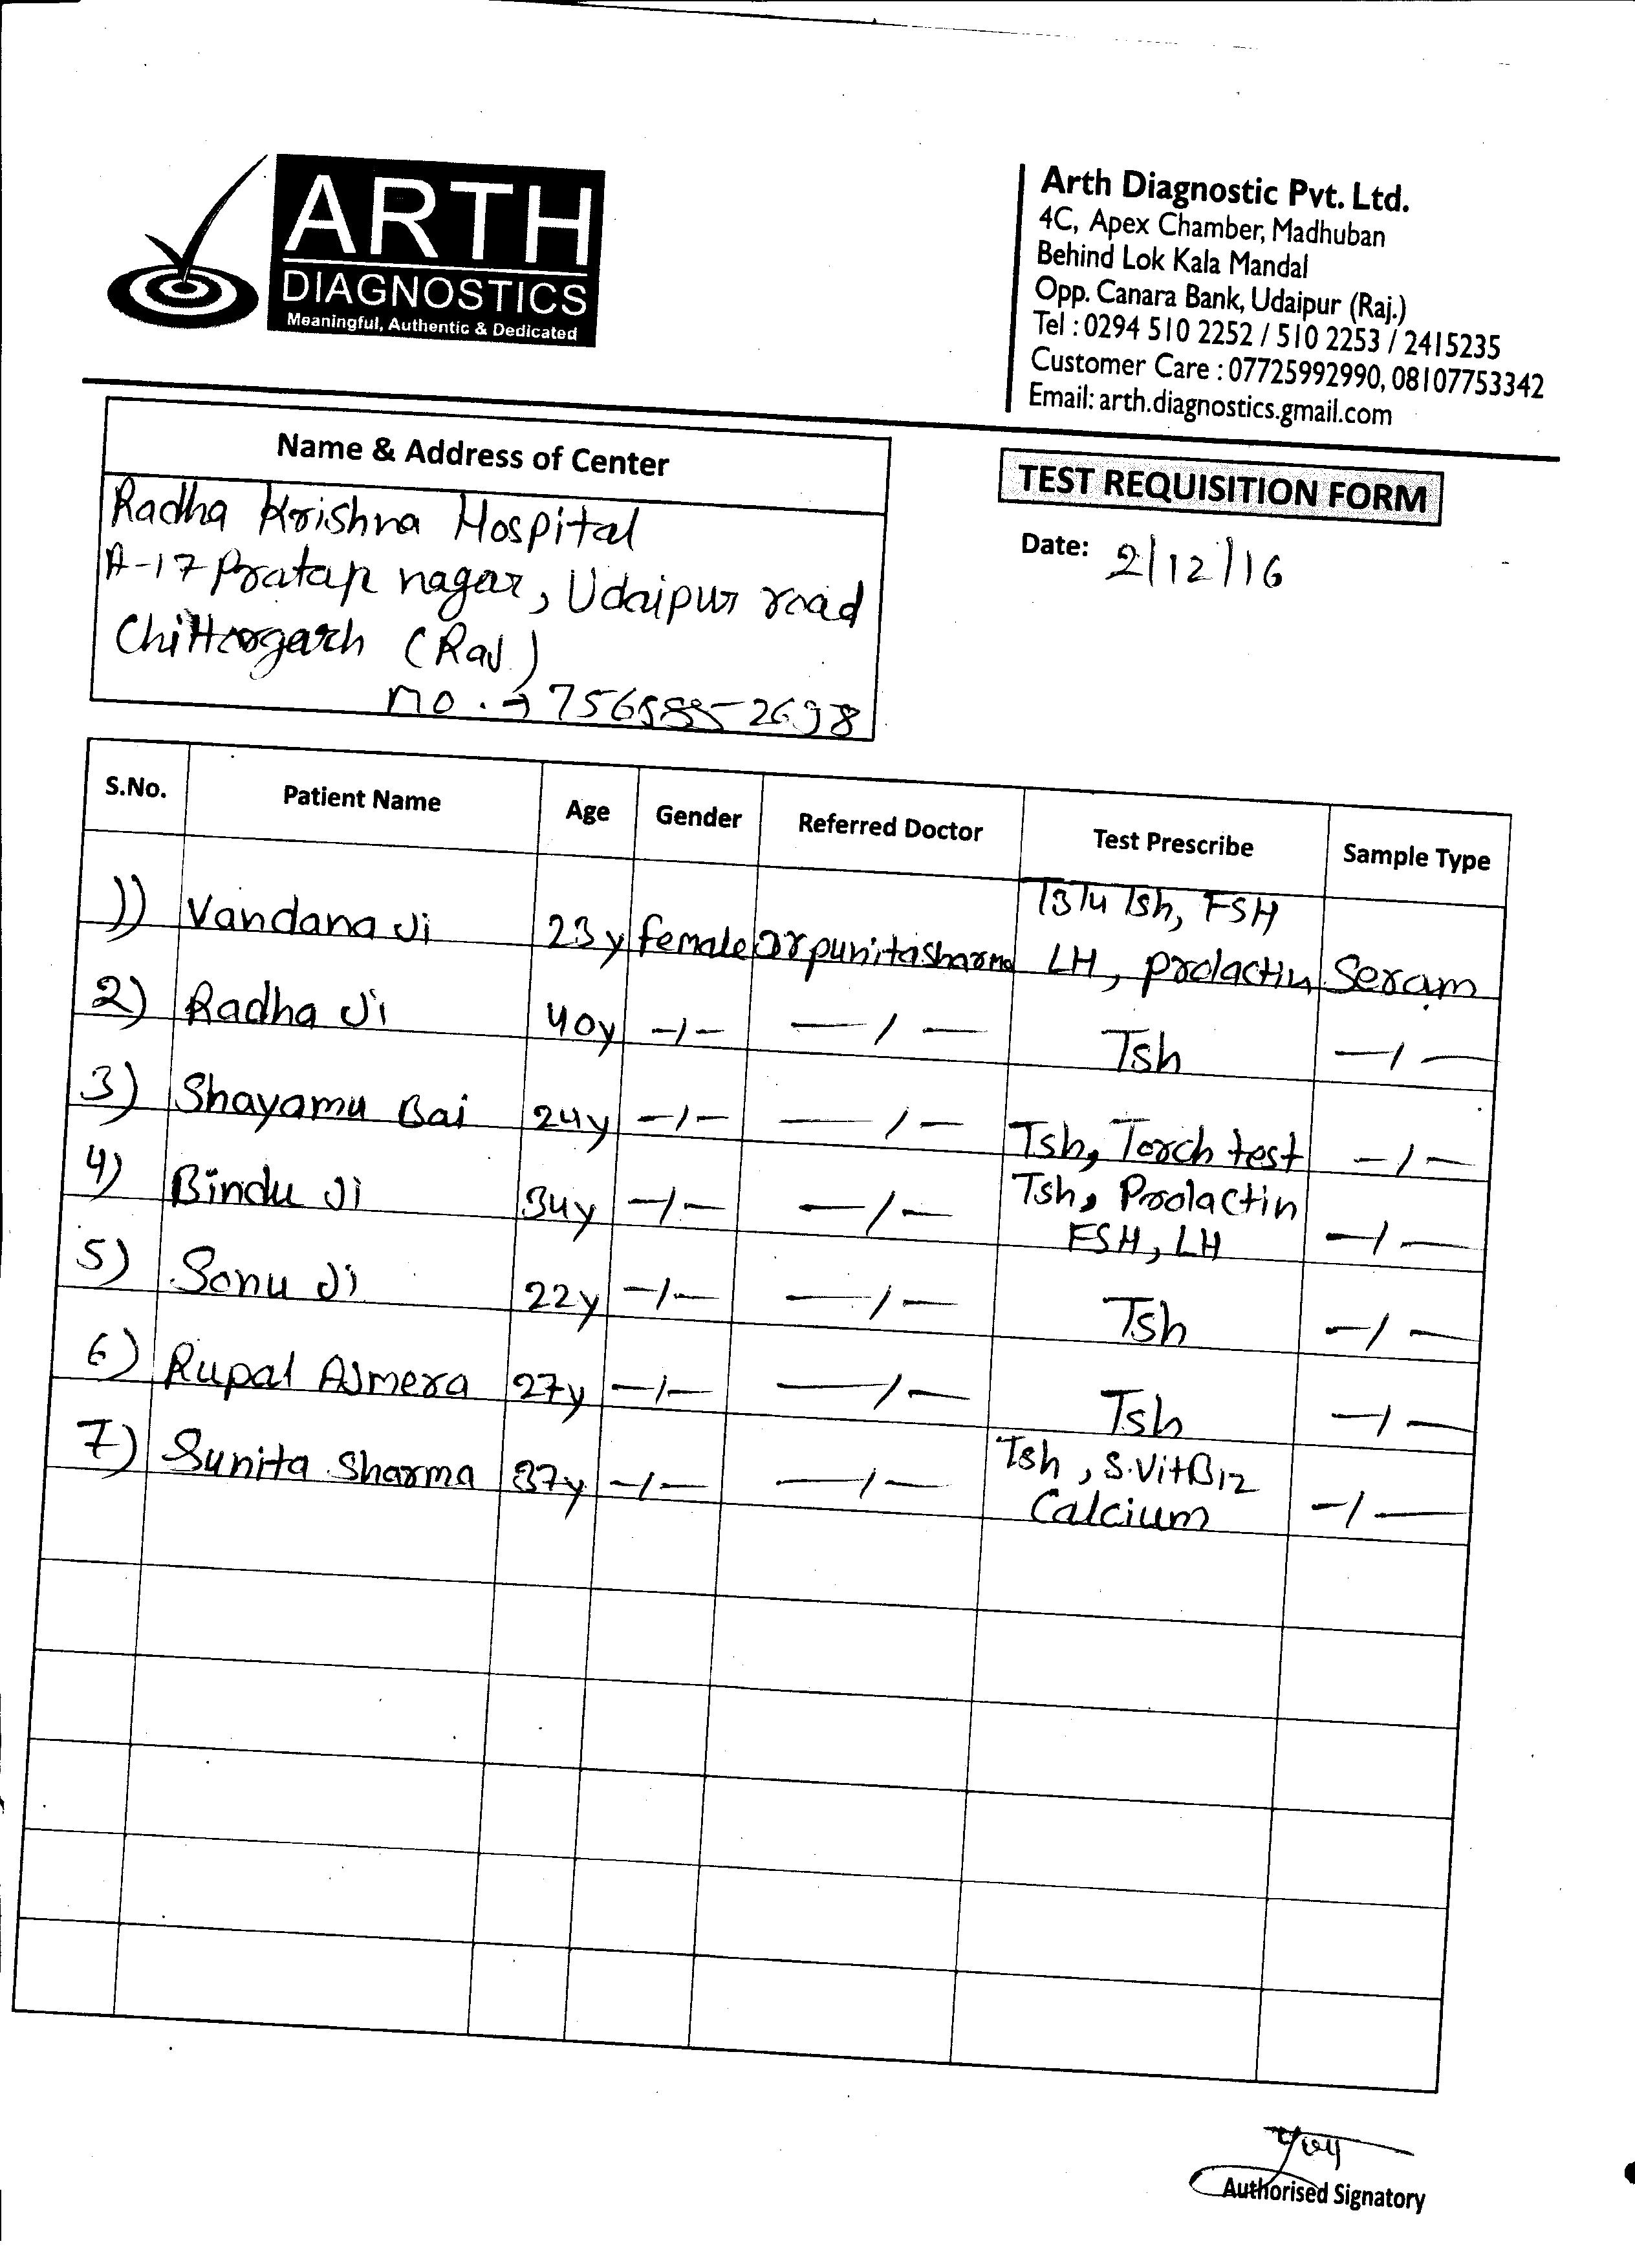 ARTH
DIAGNOSTICS
Meaningful, Authentic & Dedicated
Arth Diagnostic Pvt. Ltd.
4C, Apex Chamber, Madhuban
Behind Lok Kala Mandal
Opp. Canara Bank, Udaipur (Raj.)
Tel : 0294 510 2252 / 510 2253 / 2415235
Customer Care : 07725992990, 08107753342
Email: arth.diagnostics.gmail.com
Name & Address of Center
Radha Krishna Hospital
A-17 Pratap nagar, Udaipur road
Chittorgarh (Raj.)
no. →
TEST REQUISITION FORM
Date: 2/12/16
S.No. Patient Name Age Gender Referred Doctor Test Prescribe Sample Type
T3 T4 Tsh, FSH
1) Vandana Ji 23y female Dr punita sharma LH, prolactin Seram
2) Radha Ji 40y -/- -/- Tsh -/-
3) Shayamu Bai 24y -/- -/- Tsh, Torch test -/-
4) Bindu Ji 34y -/- -/- Tsh, Prolactin
FSH, LH -/-
5) Sonu Ji 22y -/- -/- Tsh -/-
6) Rupal AJmera 27y -/- -/- Tsh -/-
7) Sunita Sharma 37y -/- -/- Tsh, S.Vit B12
Calcium -/-
Authorised Signatory